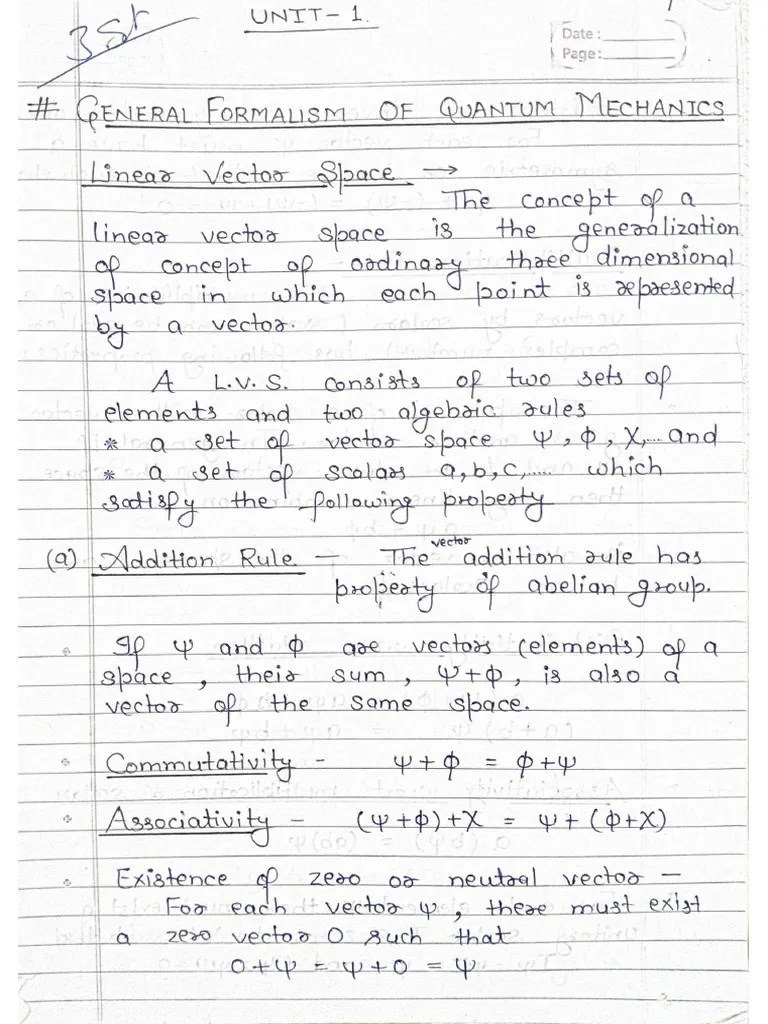 3 St
UNIT-1.
Date :
Page :
# GENERAL FORMALISM OF QUANTUM MECHANICS
Linear Vector Space →
The concept of a
linear vector space is the generalization
of concept of ordinary three dimensional
space in which each point is represented
by a vector.
A L.V.S. consists of two sets of
elements and two algebric rules
* a set of vector space Ψ, Φ, X,... and
* a set of scalars a, b, c,..... which
satisfy the following property
(a) Addition Rule - The vector addition rule has
property of abelian group.
If Ψ and Φ are vectors (elements) of a
space, their sum, Ψ+Φ, is also a
vector of the same space.
Commutativity - Ψ+Φ = Φ+Ψ
Associativity - (Ψ+Φ)+X = Ψ+(Φ+X)
Existence of zero or neutral vector -
For each vector Ψ, there must exist
a zero vector 0 such that
0+Ψ = Ψ+0 = Ψ